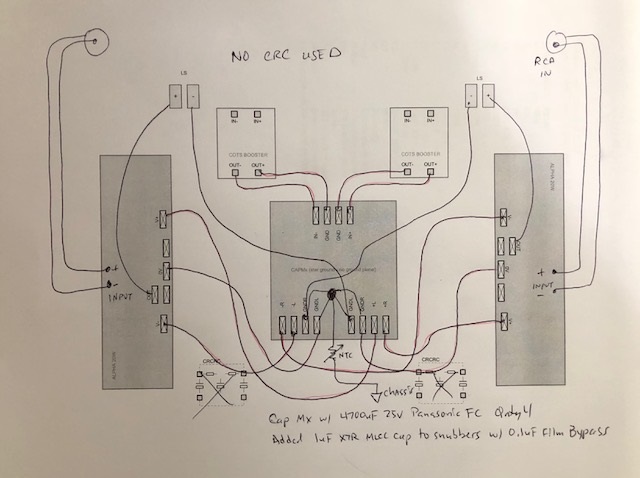 NO CRC USED
RCA
IN
LS
LS
+ -
- +
IN- IN+
IN- IN+
COTS BOOSTER
COTS BOOSTER
OUT- OUT+
OUT- OUT+
IN- GND GND IN+
ALPHA 20W
ALPHA 20W
+
-
INPUT
+
INPUT
-
NTC
CRCRC
CRCRC
CHASSIS
Cap Mx w/ 4700uF 25V Panasonic FC Qnty 4
Added 1uF X7R MLCC Cap to snubbers w/ 0.1uF Film Bypass